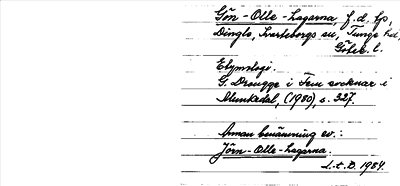 Gön-Olle-Lagarna, f.d. lp,
Dingle, Svarteborgs sn, Tunge hd,
Göteb. l.
Etymologi.
G. Drougge i Fem socknar i
Munkedal, (1980), s. 327.
Annan benämning ev.:
Jörn-Olle-Lagarna.
L.t.D. 1984.